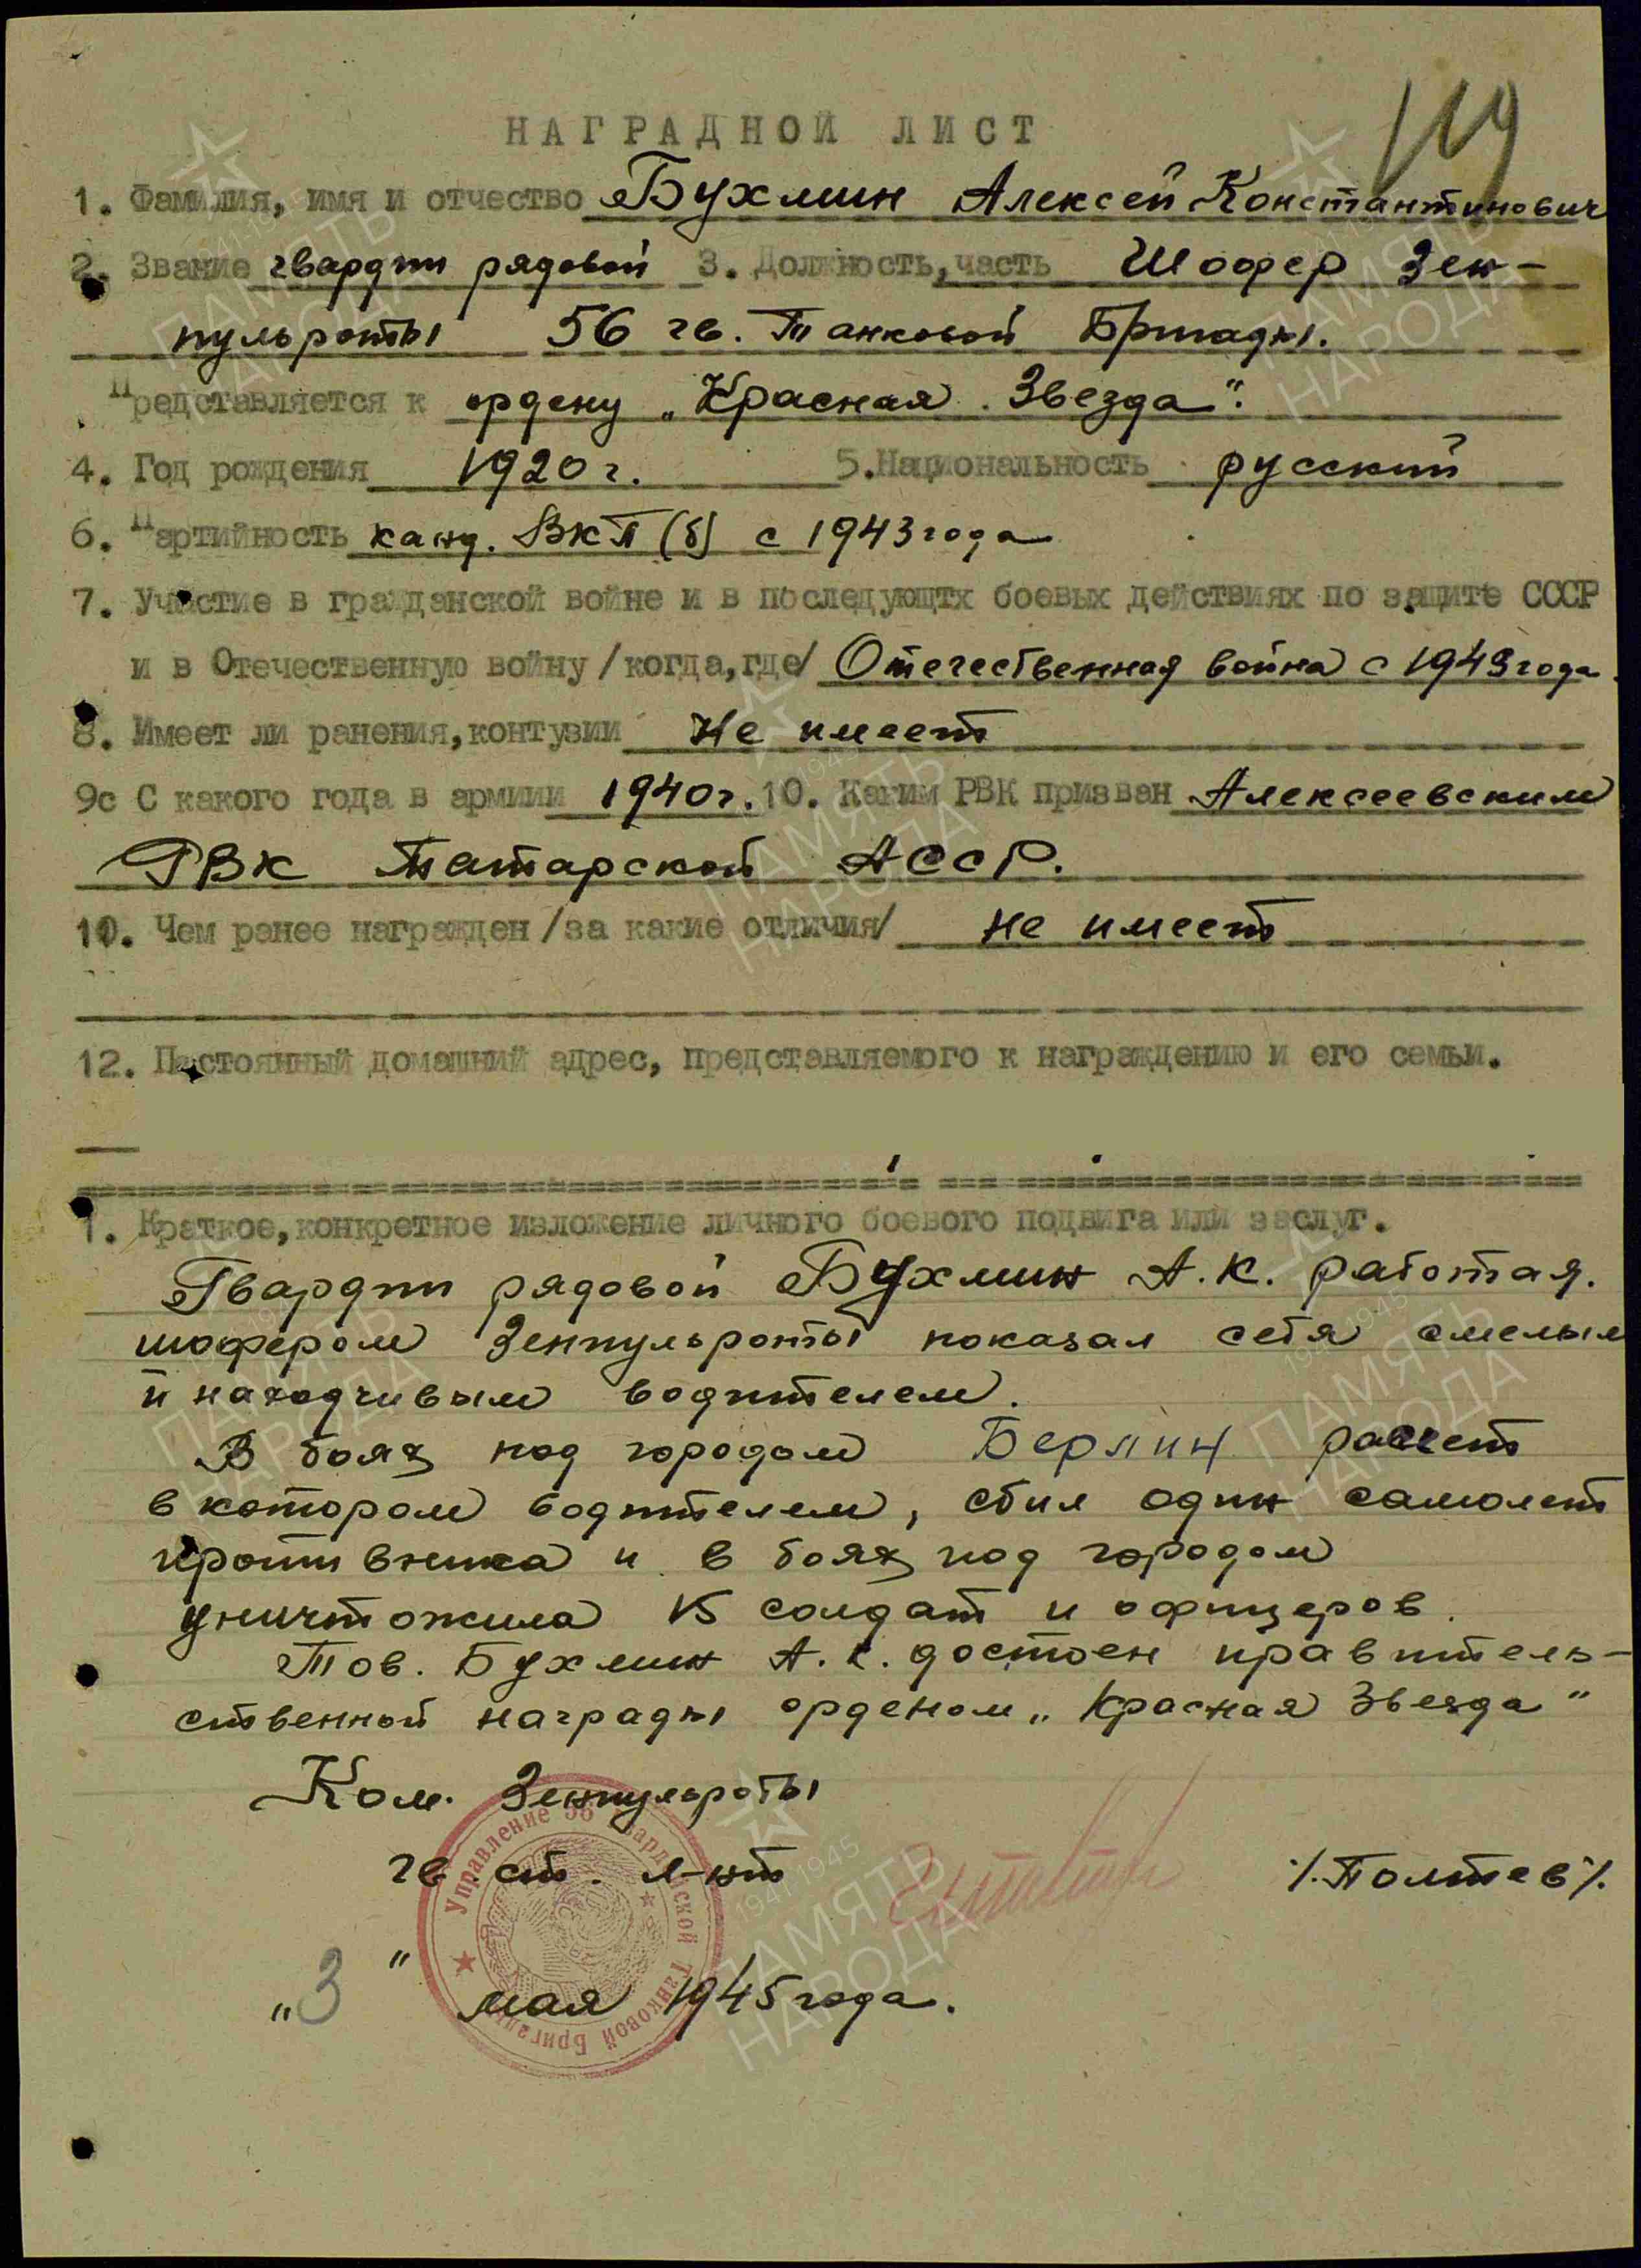 119
НАГРАДНОЙ ЛИСТ
1. Фамилия, имя и отчество Бухмин Алексей Константинович
2. Звание гвардии рядовой 3. Должность, часть Шофер Зен-
пульроты 56 гв. Танковой Бригады.
Представляется к ордену „Красная Звезда".
4. Год рождения 1920 г. 5. Национальность русский
6. Партийность канд. ВКП(б) с 1943 года
7. Участие в гражданской войне и в последующтх боевых действиях по защите СССР
и в Отечественную войну /когда, где/ Отечественная война с 1943 года.
8. Имеет ли ранения, контузии Не имеет
9с С какого года в армиии 1940 г. 10. Каким РВК призван Алексеевским
РВК Татарской АССР.
10. Чем ранее награжден /за какие отличия/ не имеет
12. Постоянный домашний адрес, представляемого к награждению и его семьи.
1. Краткое, конкретное изложение личного боевого подвига или заслуг.
Гвардии рядовой Бухмин А.К. работая.
шофером Зенпульроты показал себя смелым
и находчивым водителем.
В боях под городом Берлин расчет
в котором водителем, сбил один самолет
противника и в боях под городом
уничтожила 15 солдат и офицеров.
Тов. Бухмин А.К. достоен правитель-
ственной награды орденом „Красная Звезда"
Ком. Зенпульроты
гв. ст. л-нт /.Полтев/.
„3" мая 1945 года.
Управление 56 Гвардейской Танковой Бригады
ПАМЯТЬ НАРОДА
1941 1945